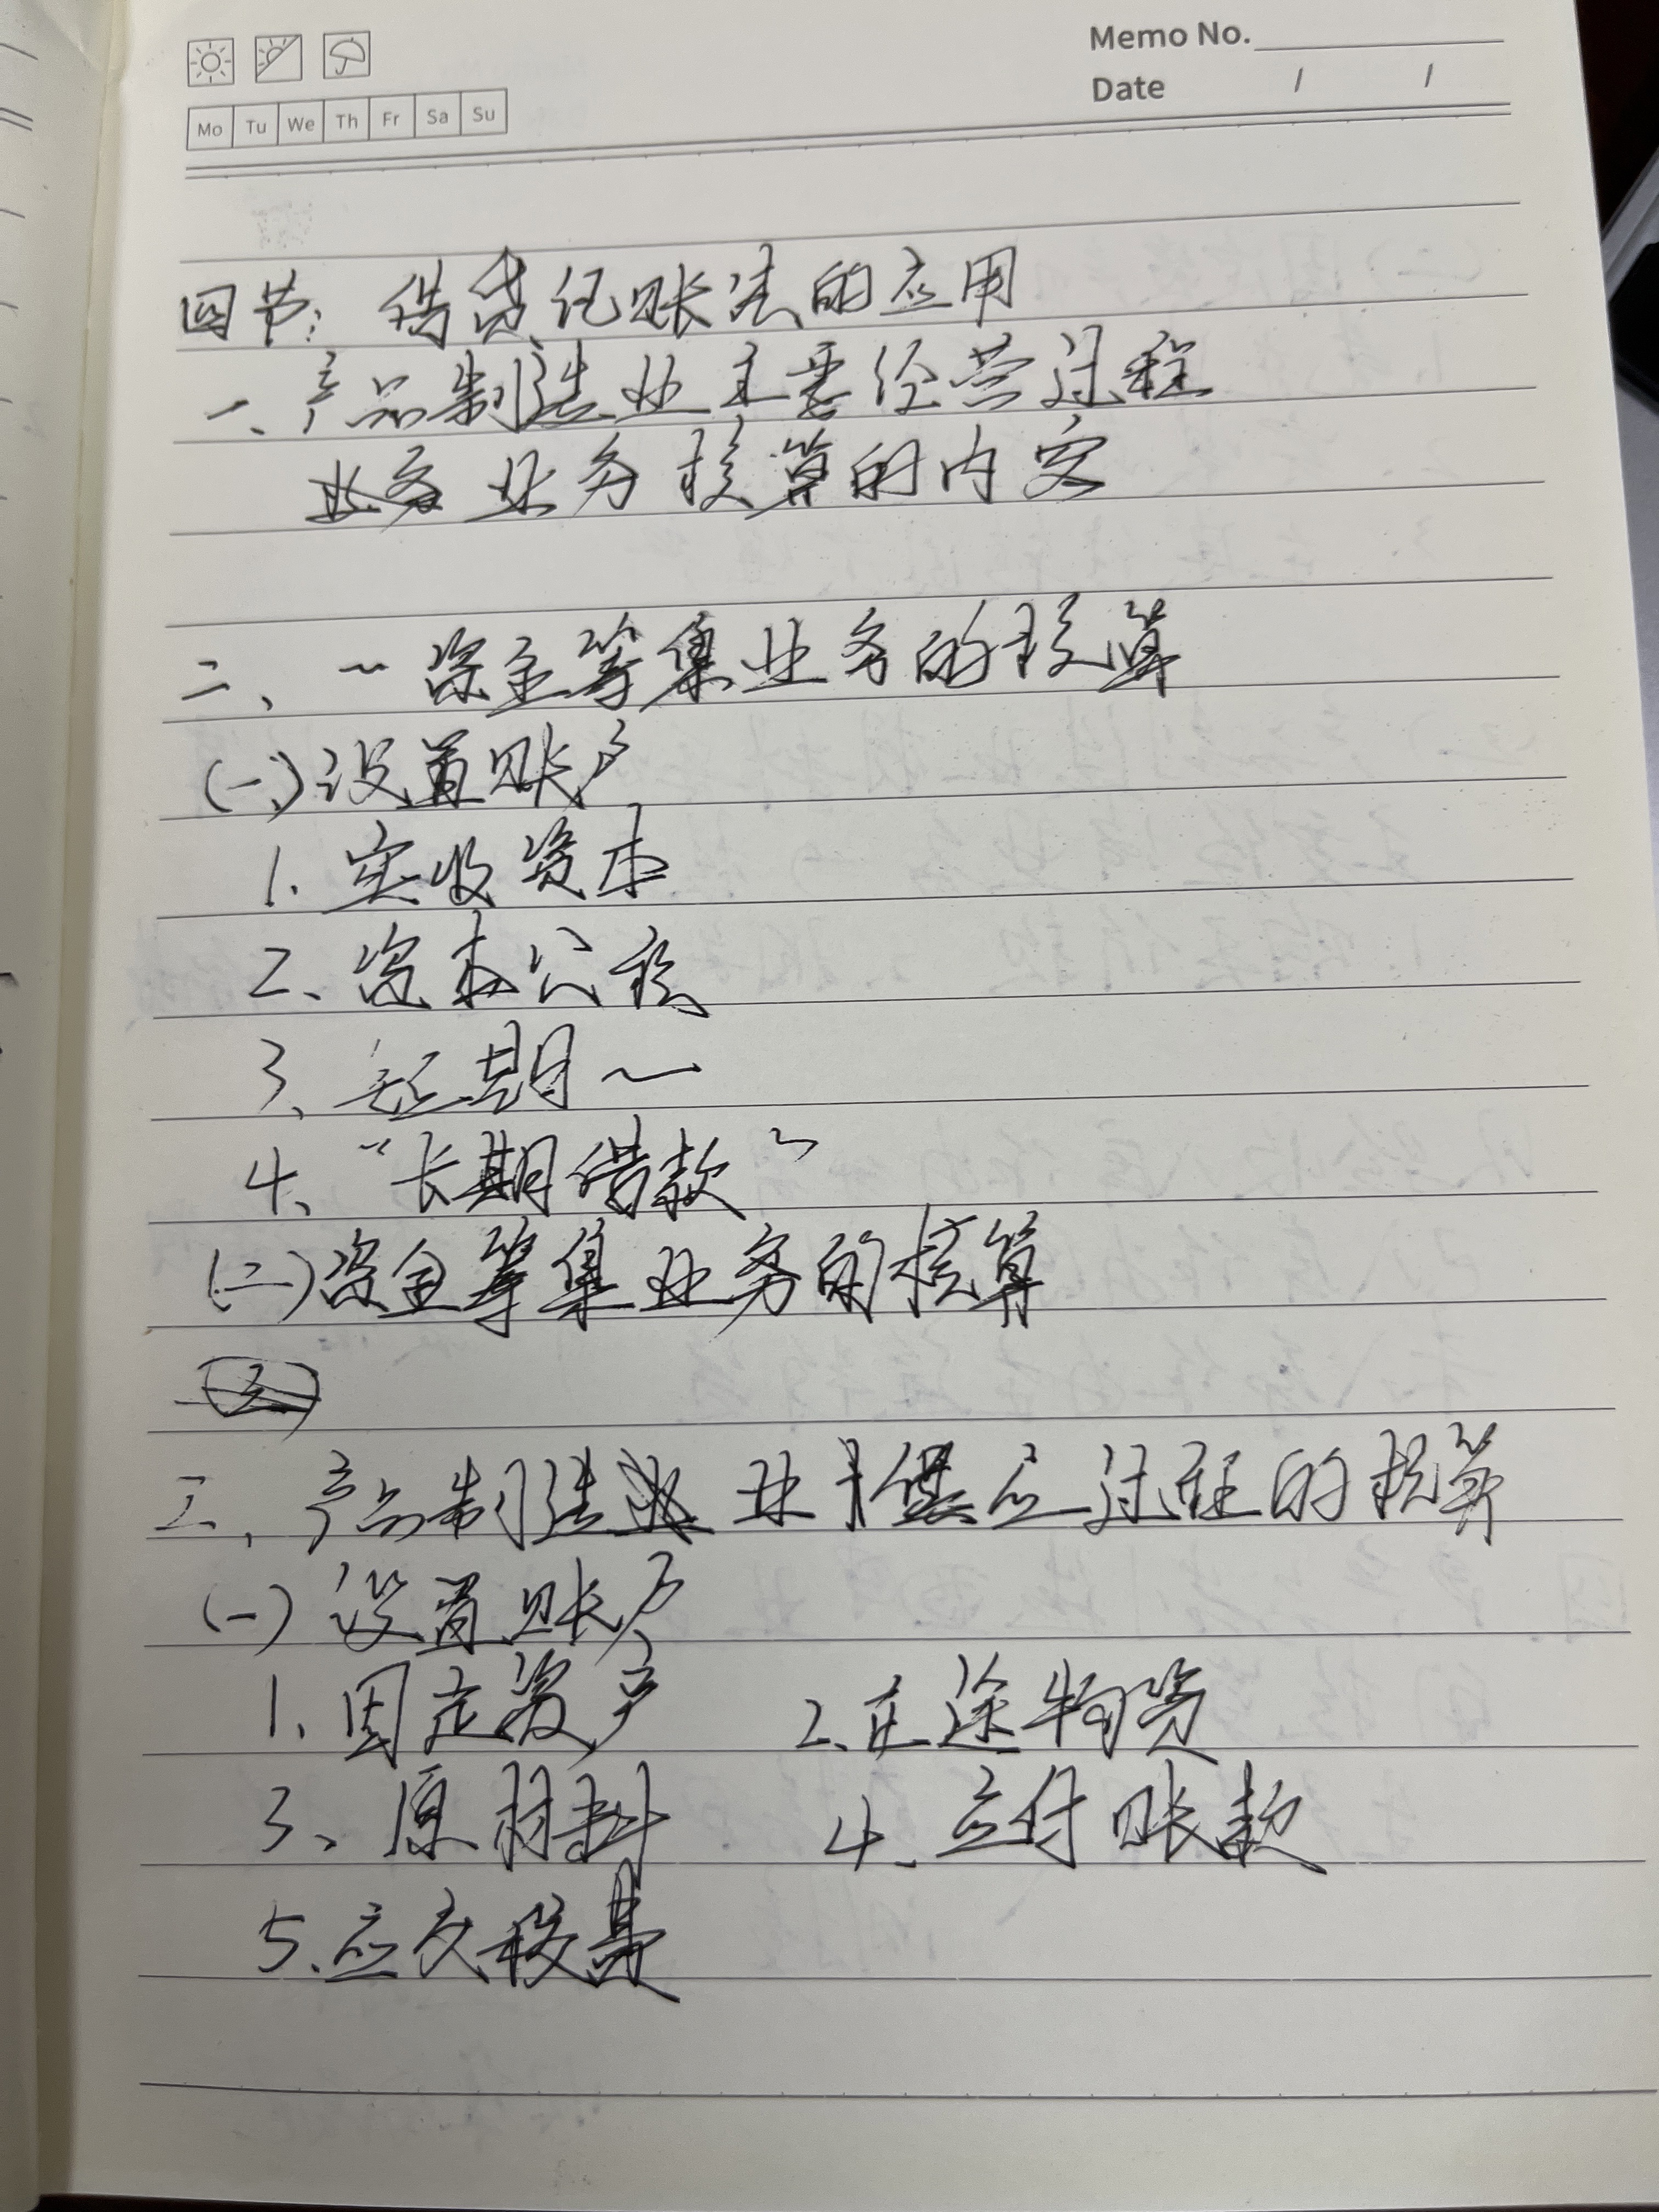 Memo No.
Date / /
Mo Tu We Th Fr Sa Su
四节：借贷记账法的应用
一、产品制造业主要经营过程
业务核算的内容
二、资金筹集业务的核算
(一)设置账户
1. 实收资本
2、资本公积
3、短期～
4、“长期借款”
(二)资金筹集业务的核算
三、产品制造业供应过程的核算
(一)设置账户
1、固定资产 2、在途物资
3、原材料 4、应付账款
5.应交税